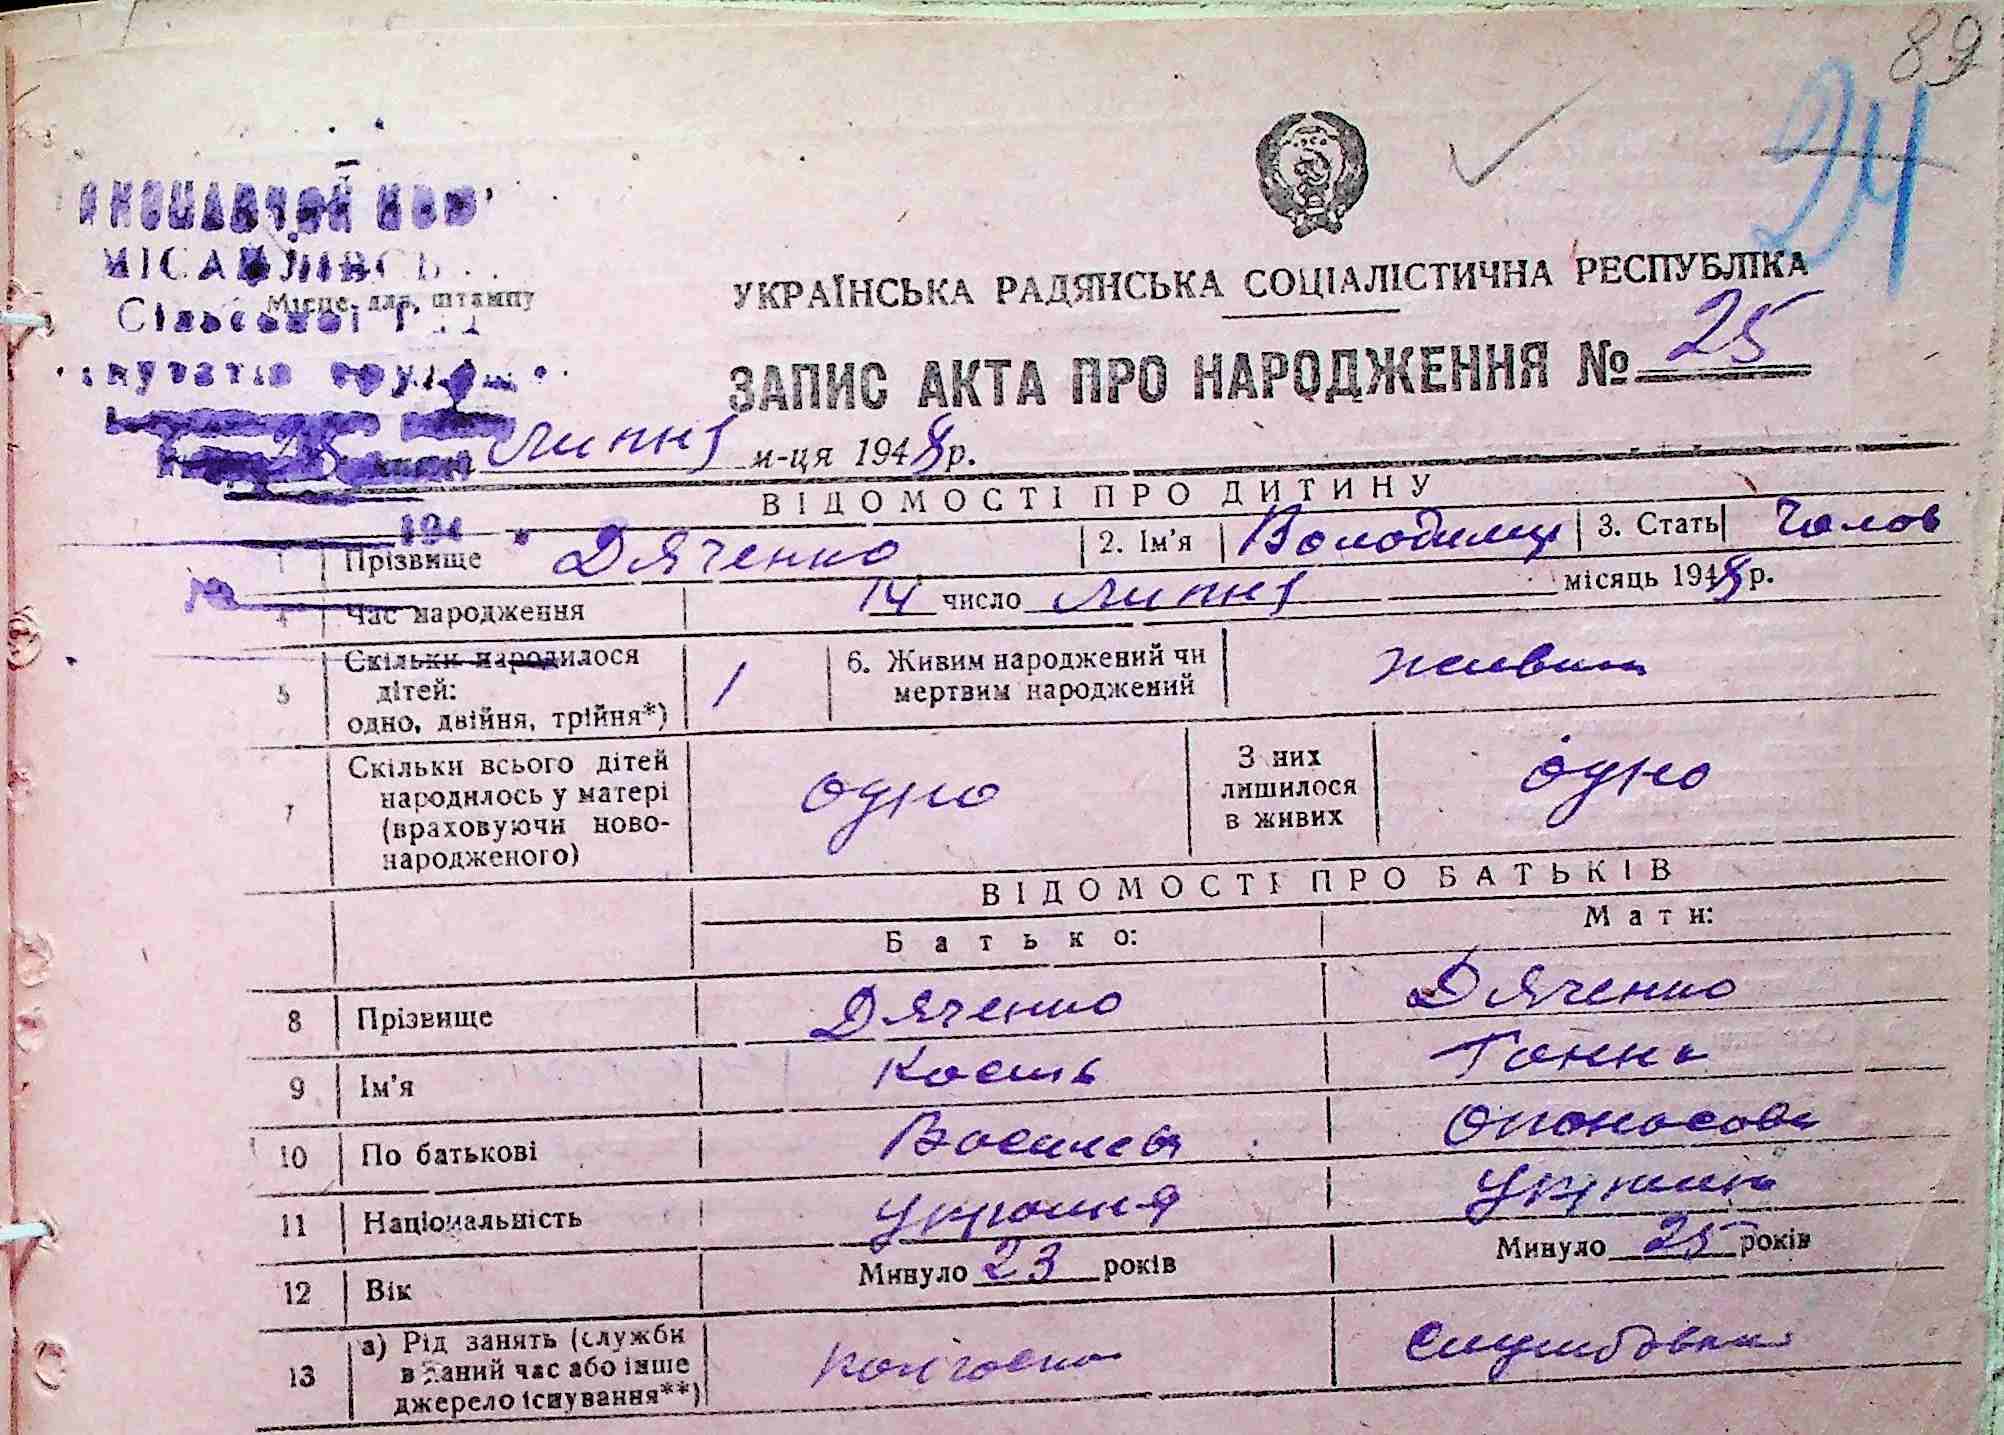 89
24
ВИКОНАВЧИЙ КОМ
МІСАЙЛІВСЬ
Місце для штампу
Сільської
УКРАЇНСЬКА РАДЯНСЬКА СОЦІАЛІСТИЧНА РЕСПУБЛІКА
ЗАПИС АКТА ПРО НАРОДЖЕННЯ № 25
25 Липня м-ця 1948 р.
194
ВІДОМОСТІ ПРО ДИТИНУ
1 Прізвище Дяченко 2. Ім'я Володимир 3. Стать Чолов
4 Час народження 14 число Липня місяць 1948 р.
5 Скільки народилося дітей: одно, двійня, трійня*) 1 6. Живим народжений чи мертвим народжений живим
7 Скільки всього дітей народилось у матері (враховуючи новонародженого) одно З них лишилося в живих одно
ВІДОМОСТІ ПРО БАТЬКІВ
Батько: Мати:
8 Прізвище Дяченко Дяченко
9 Ім'я Кость Ганна
10 По батькові Василев Опонасовн
11 Національність
12 Вік Минуло 23 років Минуло 25 років
13 а) Рід занять (служби в даний час або інше джерело існування**)